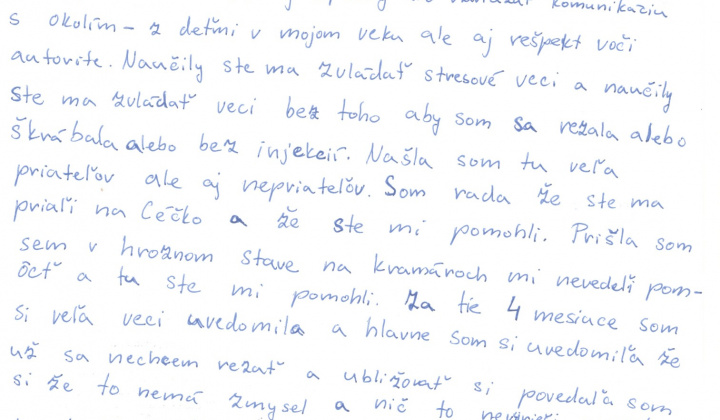 komunikáciu
s okolím – z deťmi v mojom veku ale aj rešpekt voči
autorite. Naučily ste ma zvládať stresové veci a naučily
ste ma zvládať veci bez toho aby som sa rezala alebo
škrábala alebo bez injekcií. Našla som tu veľa
priateľov ale aj nepriateľov. Som rada že ste ma
priaľi na Céčko a že ste mi pomohli. Prišla som
sem v hroznom stave na kramároch mi nevedeľi pom-
ôcť a tu ste mi pomohli. Za tie 4 mesiace som
si veľa veci uvedomila a hlavne som si uvedomiľa že
už sa nechcem rezať a ubližovať si povedaľa som
si že to nemá zmysel a nič to